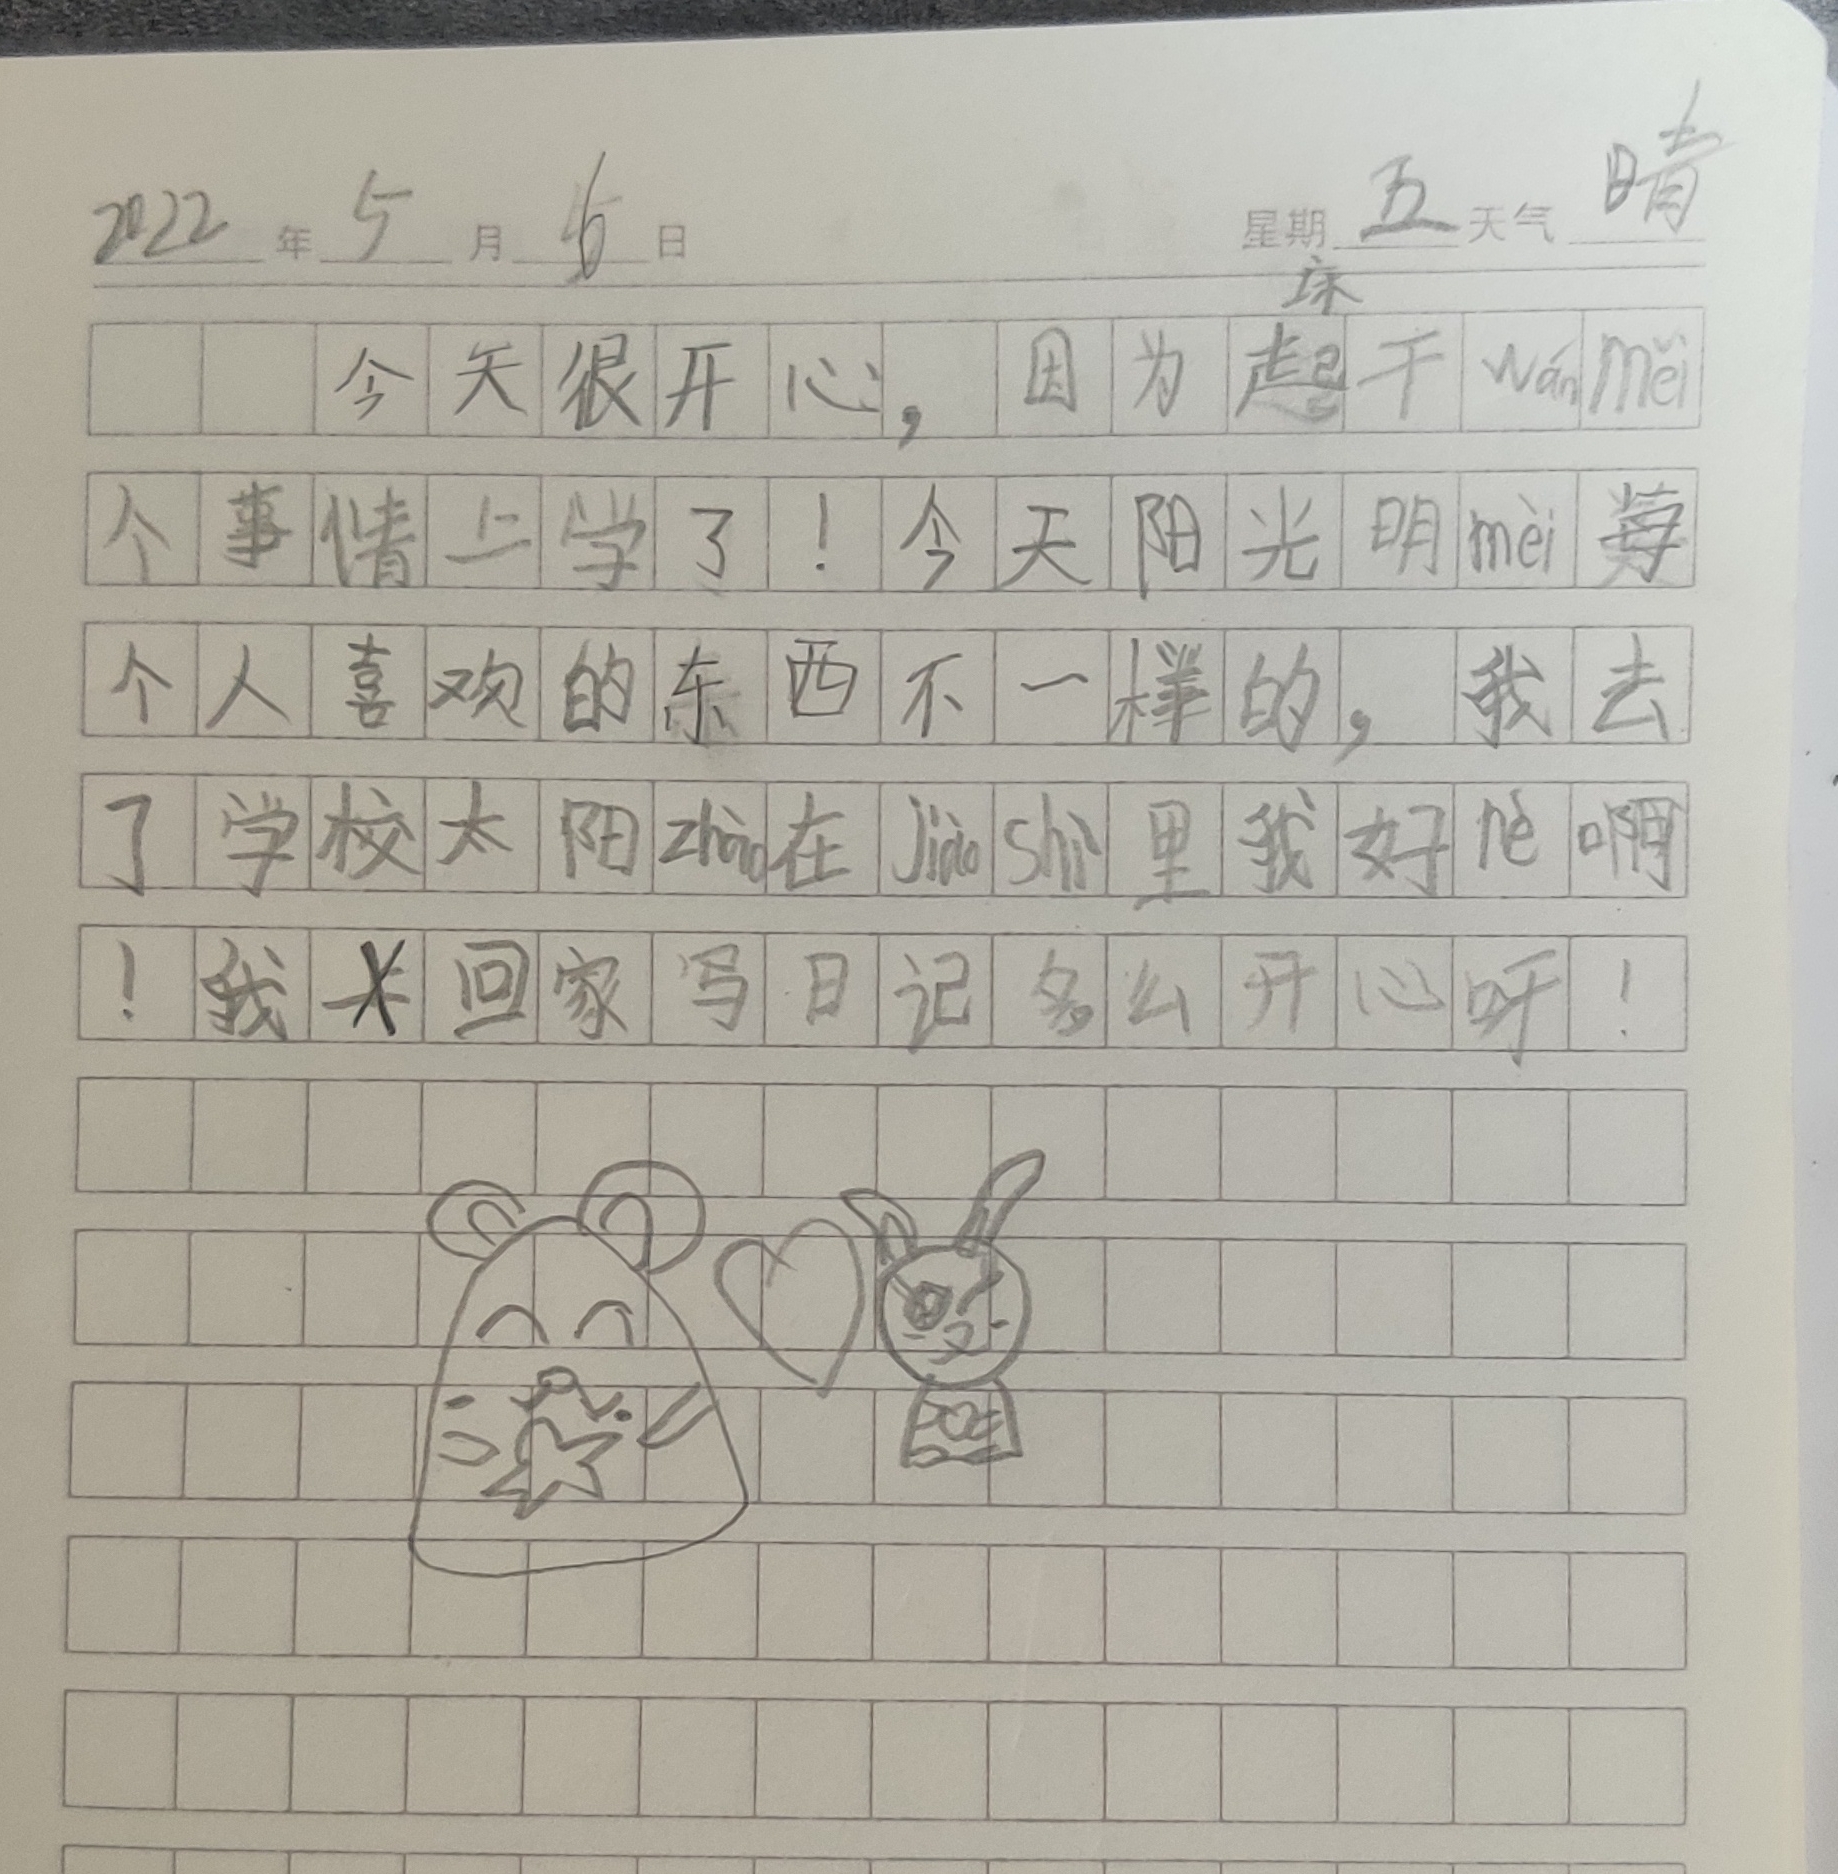 2022年5月6日 星期五天气晴
床
今天很开心，因为起干wánměi
个事情上学了！今天阳光明mèi莓
个人喜欢的东西不一样的，我去
了学校太阳zhào在jiàoshì里我好rè啊
！我回家写日记多么开心呀！